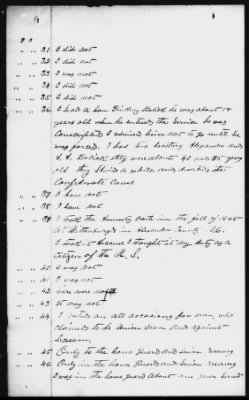 " " 31 I did not
" " 32 I did not
" " 33 I was not
" " 34 I did not
" " 35 I did not
" " 36 I had a son he was about 18
years old when he entered the Service he was
Conscripted I advised him not to go until he
was forced. I had two brothers Alexander and
they were about 40 and 45 years
old they a while and deserted the
Confederate Cause
" " 37 I have not
" " 38 I have not
" " 39 I took the Amnesty Oath in the fall of 1865
At in County
I took it because I thought it my duty as a
Citizen of the U. S.
" " 40 I was not
" " 41 I was not
" " 42 were not
" " 43 It was not
" " 44 I voted on all occasions for men, who
claimed to be Union men and against
Secession,
" " 45 Only by the home guard and Union
" " 46 Only in the home Guards and Union
I was in the home guard about one year